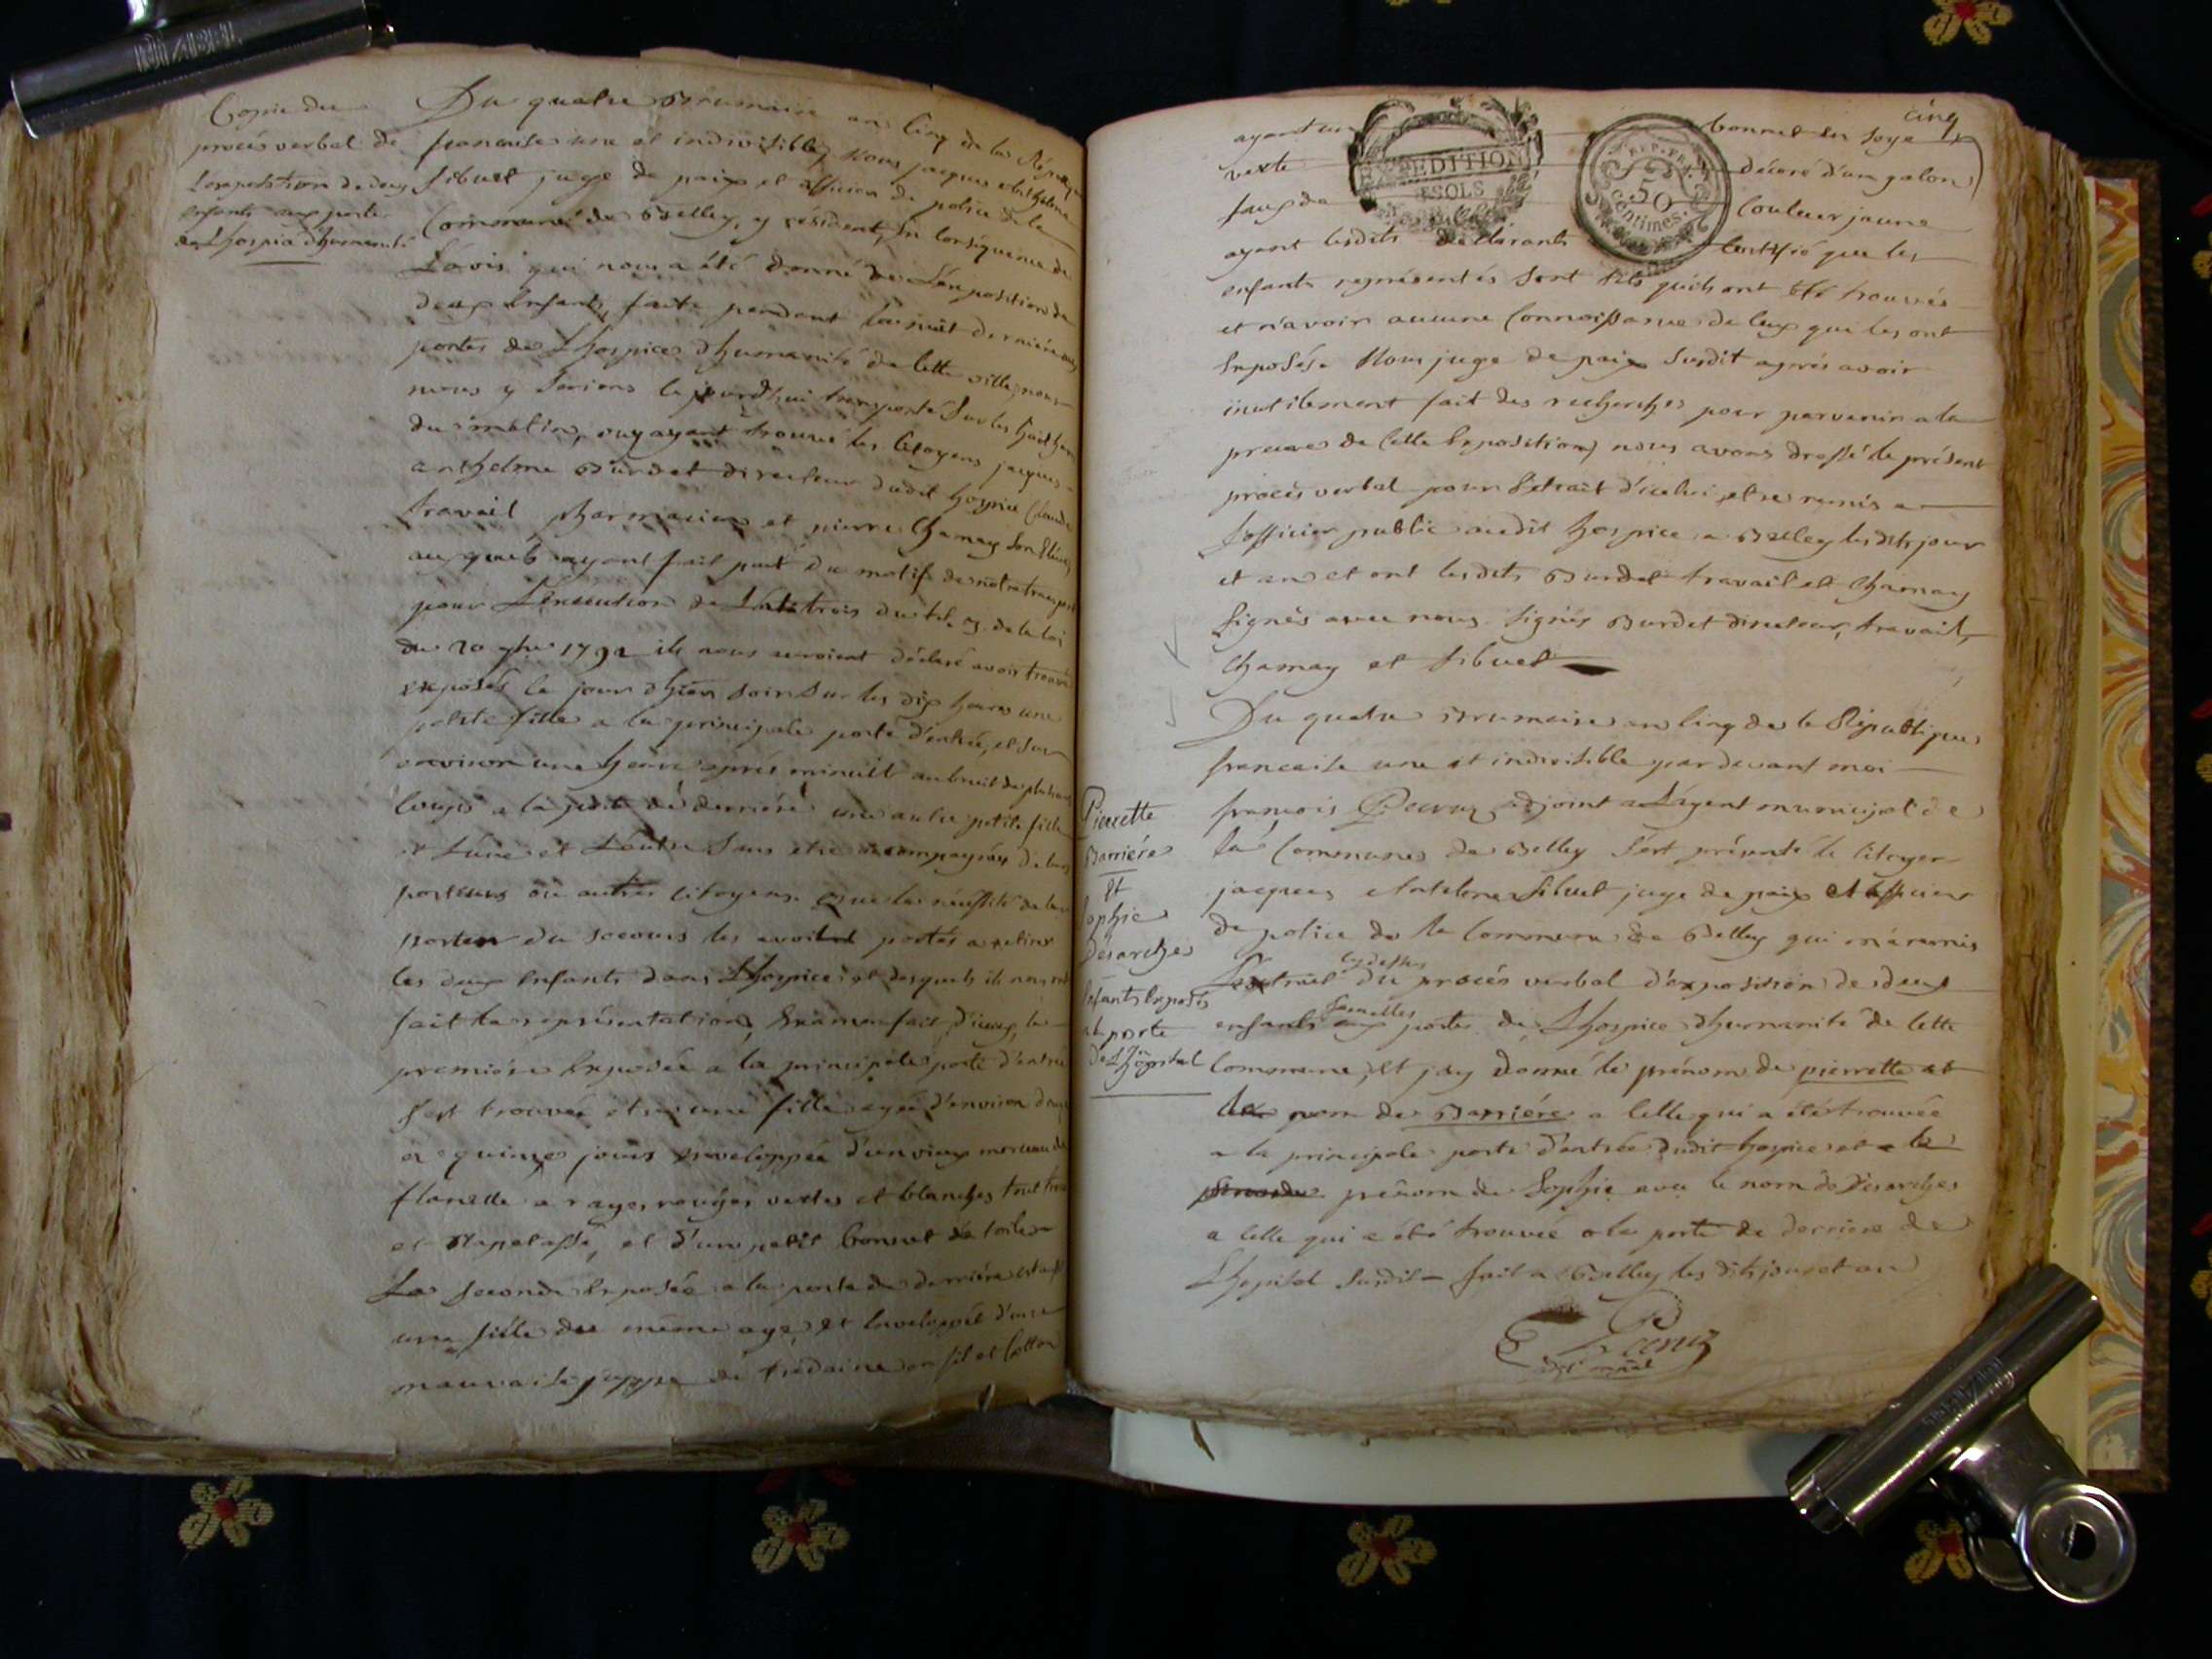 Copie du
procés verbal de
L'exposition de deux
enfants aux portes
de Lhospice dhumanité
Du quatre Brumaire an cinq de la République
francaise une et indivisible, Nous jacques Anthelme
Sibuet juge de paix et officier de police de la
Commune de Belley, y résident, En Conséquence de
L'avis qui nous a été donné de L'exposition de
deux Enfants, faite pendant la nuit derniére aux
portes de Lhospice dhumanité de cette ville, nous
nous y serions cejourd'hui transporté sur les huit heures
du matin, ou ayant trouvé les Citoyens jacques
anthelme Burdet directeur dudit hospice Claude
travail pharmacien et pierre Chamay son Eléve,
auxquels ayant fait part du motif de notre transport
pour L'execution de L'art. trois du tit. 3. de la loi
du 20 7bre 1792 ils nous auroient déclaré avoir trouvé
exposés le jour dhier soir sur les dix heures une
petite fille a la principale porte d'entrée, et sur
environ une heure aprés minuit au bruit de plusieurs
coups a la porte de derriére une autre petite fille
et L'une et L'autre sans etre accompagnées de leurs
porteurs ou autres citoyens. Que la nécessité de leur
porter du secours les avoit portés a retirer
les deux Enfants dans Lhospice et desquels ils nous ont
fait la représentation, Examen fait d'iceux, la
premiére Exposée a la principale porte d'entrée
s'est trouvée etre une fille agée d'environ douze
a quinze jours enveloppée d'un vieux morceau de
flanelle a rayes rouges vertes et blanches tout troué
et rapetassé, et d'un petit bonnet de toile
La seconde Exposée a la porte de derriére est aussi
une fille du même age, et Enveloppée d'une
mauvaise juppe de tredaine en fil et cotton
cinq
ayant un bonnet en soye
verte décoré d'un galon
faux de couleur jaune
EXPEDITION
SOLS
REP. FRA.
50
centimes.
ayant lesdits déclarants Certifié que les
enfants représentés sont tels qu'ils ont été trouvés
et n'avoir aucune Connoissance de ceux qui les ont
Exposés. Nous juge de paix susdit aprés avoir
inutilement fait des recherches pour parvenir a la
preuve de cette Exposition, nous avons dressé le présent
procés verbal pour L'extrait d'icelui etre remis a
L'officier public audit hospice a Belley lesdits jour
et an et ont lesdits Burdet travail et Chamay
signés avec nous. Signés Burdet directeur, travail,
Chamay et Sibuet
Pierrette
Barriére
Et
Sophie
Désarches
Enfants Exposés
a la porte
de L'hôpital
Du quatre Brumaire an cinq de la République
francaise une et indivisible par devant moi
francois adjoint a L'agent municipal de
la Commune de Belley s'est présenté le citoyen
jacques Anthelme Sibuet juge de paix et officier
de police de la Commune de Belley qui m'a remis
L'extrait cy dessus du procés verbal d'exposition de deux
enfants femelles aux portes de Lhospice dhumanité de cette
Commune, et j'ay donné le prénom de pierrette et
le nom de Barriére a celle qui a été trouvée
a la principale porte d'entrée dudit hospice et le
prénom de Sophie avec le nom de Désarches
a celle qui a été trouvée a la porte de derriere de
Lhopital susdit fait a Belley les dits jour et an